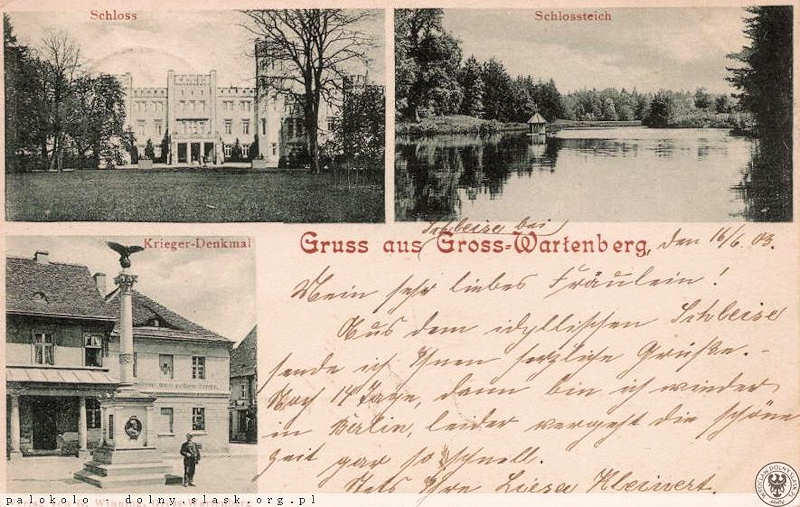 Schloss
Schlossteich
Krieger-Denkmal
Schleise bei
Gruss aus Gross-Wartenberg, den 16/6. 03.
Mein sehr liebes Fräulein!
Aus dem idyllischen Schleise
sende ich Ihnen herzliche Grüße.-
Noch 14 Tage, dann bin ich wieder
in Berlin, leider vergeht die schöne
Zeit gar so schnell.
Stets Ihre Liesa
palokolo - dolny-slask.org.pl